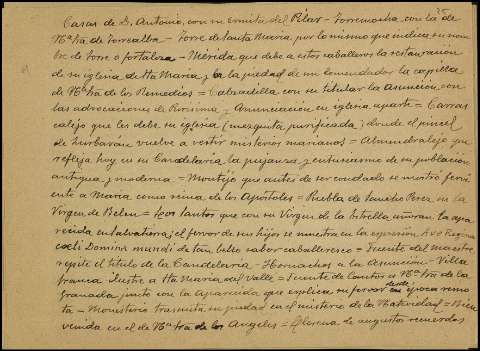 Casas de D. Antonio, con su Ermita del Pilar - Torremocha, con la de
Nª Srª de Torrealba - Torre de Santa Maria, por lo mismo que indica su nom
bre de Torre o fortaleza - Mérida que debe a estos caballeros la restauración
de su iglesia de Sta Maria, y a la piedad de un comendador la capilla
de Nª Srª de los Remedios = Calzadilla con su titular la Asunción, con
las advocaciones de Rocisima, y Anunciación en iglesia aparte = Carras
calejo que les debe su iglesia (mezquita purificada) donde el pincel
de Zurbarán vuelve a vestir misterios marianos = Almendralejo que
refleja hoy en su Candelaria la pujanza y entusiasmo de su población
antigua y moderna = Montijo que antes de ser condado se mostró fervi
ente a Maria, como reina de los Apóstoles = Puebla de Sancho Perez en la
Virgen de Belen = Los Santos que con su Virgen de la Estrella añoran la apa
recida en Salvatierra; el fervor de sus hijos se muestra en la expresión Ave Regina
coeli Domina mundi de tan bello sabor caballeresco = Fuente del maestre,
repite el titulo de la Candelaria - Hornachos a la Asunción - Villa
franca ilustre a Sta Maria del Valle = Fuente de Cantos a Nª Srª de la
Granada junto con la Aparecida que explica su fervor desde epoca remo
ta - Monasterio trasmite su piedad en el misterio de la Natividad = Bien
venida en el de Nª Srª de los Angeles = Llerena de augustos recuerdos